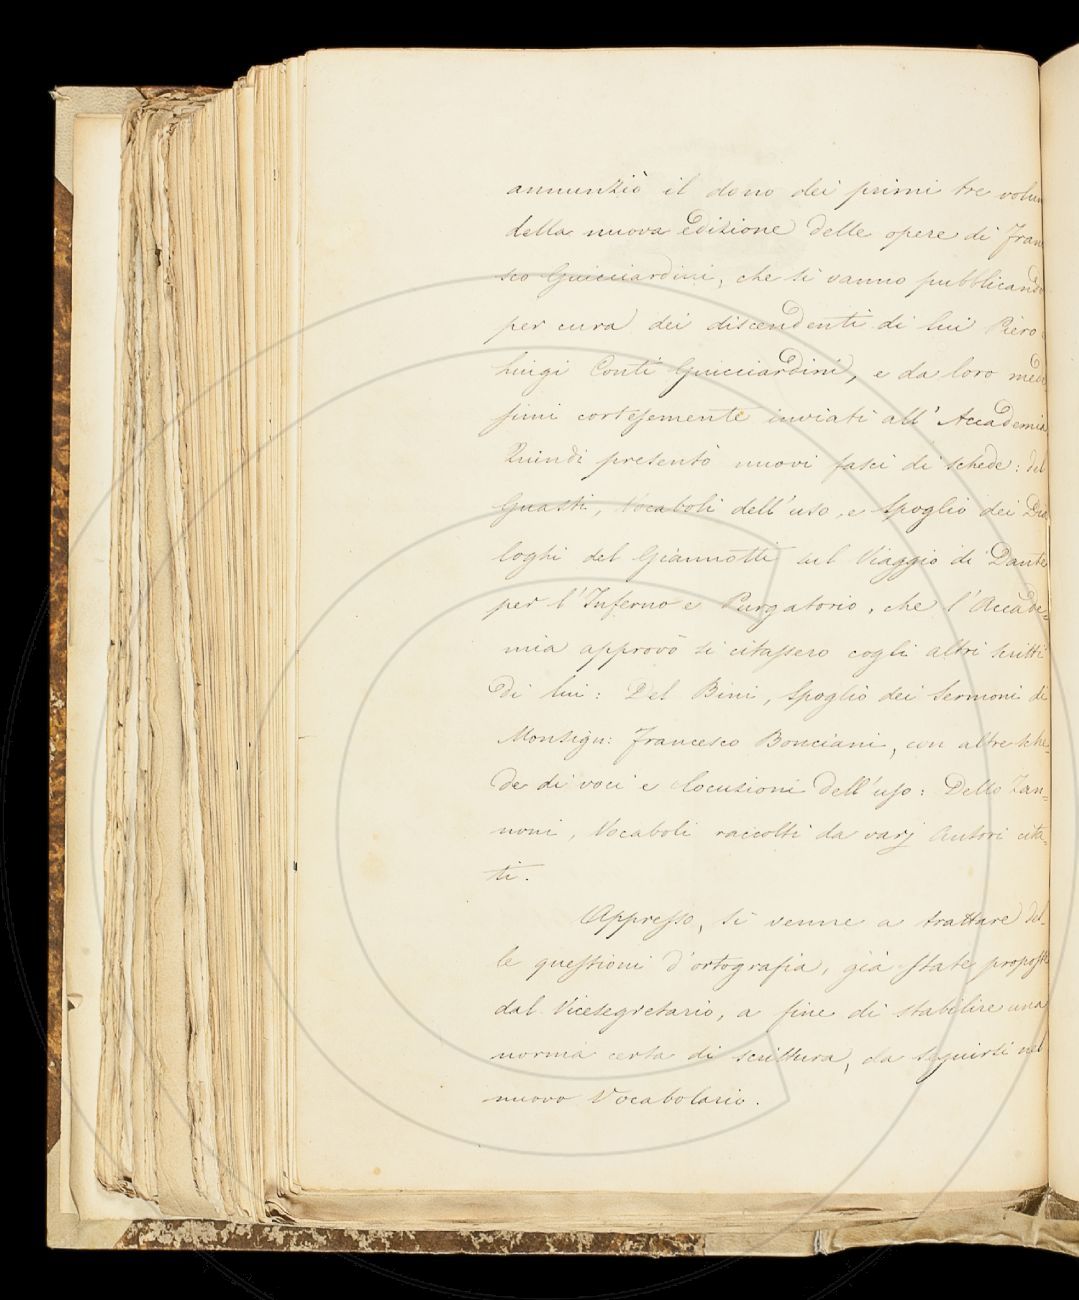 annunziò il dono dei primi tre volum
della nuova Edizione delle opere di Fran
sco Guicciardini, che si vanno pubblicando
per cura dei discendenti di lui Piero
Luigi Conti Guicciardini, e da loro mede
simi cortesemente inviati all' Accademia
Quindi presentò nuovi fasci di schede: del
Guasti, Vocaboli dell'uso, e Spoglio dei Dia
loghi del Giannotti sul Viaggio di Dante
per l'Inferno e Purgatorio, che l'Accade-
mia approvò si citassero cogli altri scritti
di lui: Del Bini, Spoglio dei Sermoni di
Monsign: Francesco Bonciani, con altre sche-
de di voci e locuzioni dell'uso: Dello Zan=
noni, Vocaboli raccolti da varj Autori cita-
ti.
Appresso, si venne a trattare del-
le questioni d'ortografia, già state proposte
dal Vicesegretario, a fine di stabilire una
norma certa di scrittura, da seguirsi nel
nuovo Vocabolario.